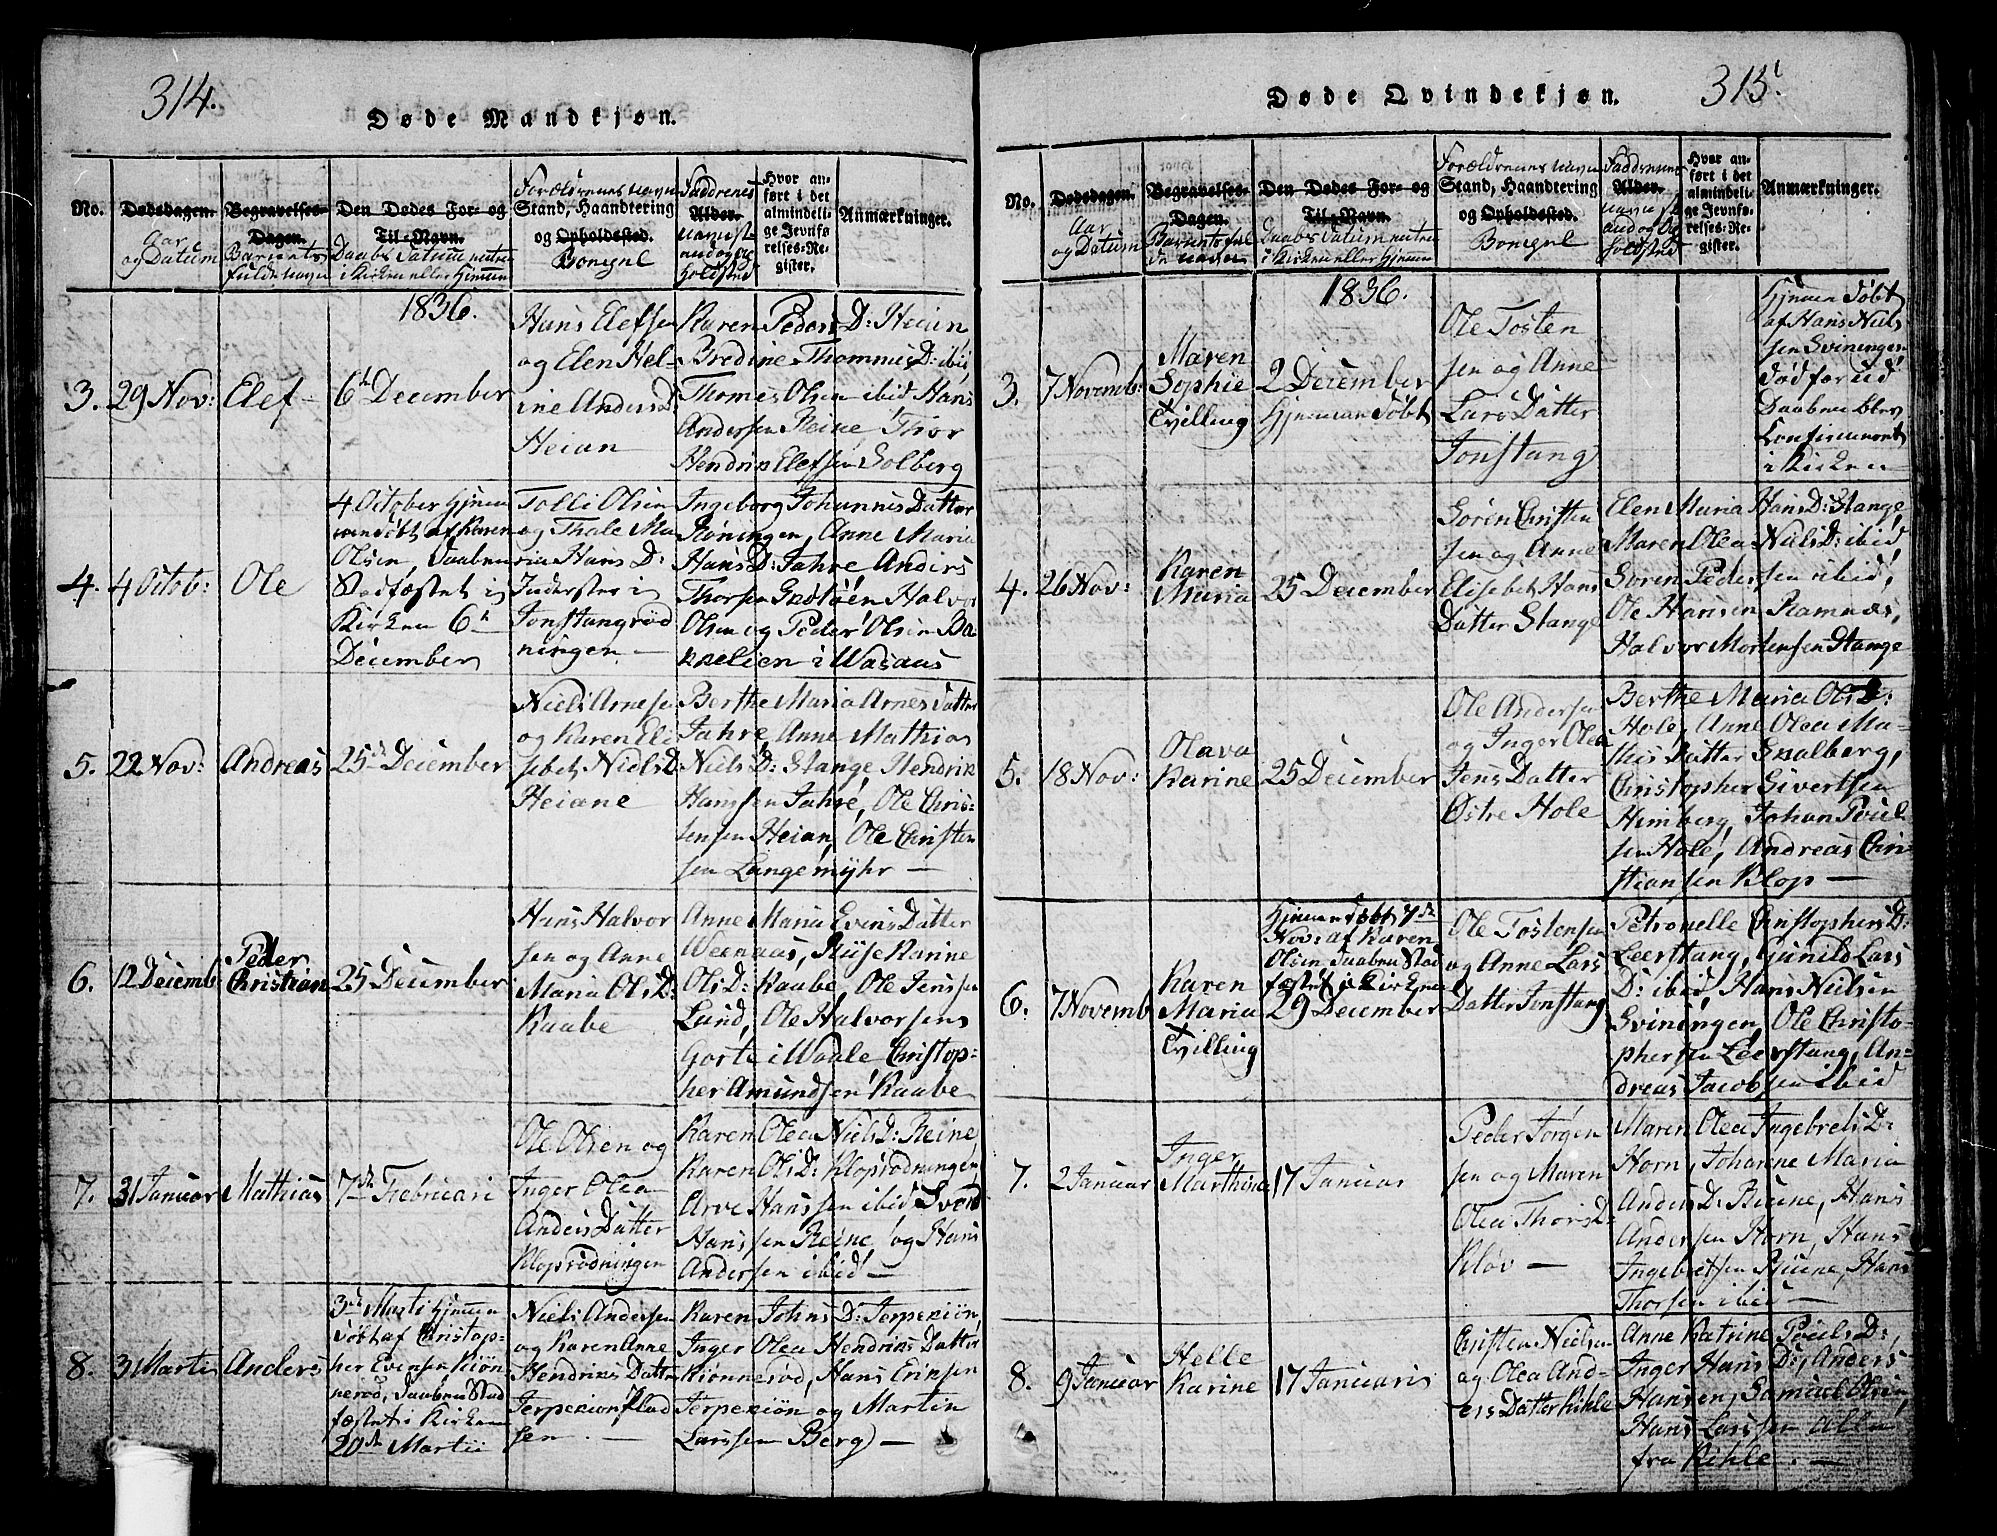 314.
Døde Mandkjøn.
No.
Dødsdagen.
Aar
og Datum
Begravelses-
Dagen.
Barnets
fulde navn
Den Dødes For- og
Til-Navn.
Daabs Datum enten
i Kirken eller Hjemme
Forældrenes navn
Stand, Haandtering
og Opholdsted.
Bopæl
Faddrenes
Alder.
navn
Hvor an-
ført i det
almindeli-
ge Jevnfø-
relses-Re-
gister.
Anmærkninger.
1836.
3.
29 Nov:
Elef –
6te December
Hans Elefsen
og Elen Hel-
ine Anders D:
Heian
Karen Peders D: Heien
Bredine Thommes D: ibid,
Thomes Olsen ibid Hans
Andersen Reine Thor
Hendrik Elefsen Solberg
4.
4 Octob:
Ole
4 October Hjem
Olsen, Daaben
Stadfæstet i
Kirken 6te
December
Tolli Olsen
og Thale Ma
ria Hans D:
Inderster i
Jonstangrød
ningen –
Ingeborg Johannis Datter
Røningen, Anne Maria
Hans D: Jahre Anders
Halvor
Olsen og Peder Olsen Ba
kkelien i Wasaas
5.
22 Nov:
Andreas
25de December
Niels Arnesen
og Karen Eli
sebet Niels D:
Heiane
Berthe Maria Arnes Datter
Jahre Anne Mathias
Niels D: Stange Hendrik
Hanssen Jahre, Ole Chris-
sensen Heian, Ole Christen
sen Langemyhr –
6.
12 Decemb
Peder
Christian
25 December
Hans Halvor
sen og Anne
Maria Ols D:
Raabe
Anne Maria Evens Datter
Weenaas, Riise Karine
Ols D: Raabe, Ole Jenssen
Lund, Ole Halvorsens
Gorte i Waale Christop-
her Amundsen Raabe
7.
31 Januar
Mathias
7de Februari
Ole Olsen og
Inger Olea
Anders Datter
Klopsrødningen
Karen Olea Niels D: Reine
Karen Ols D: Klopsrødningen
Arve Hanssen ibid Svend
Hanssen Reine og Hans
Andersen ibid –
8.
3 Martis
Anders
3de Marti Hjemme
døbt af Christop-
her Evensen Kiøn-
nerød, Daaben Stad
fæstet i Kirken
20de Martii
Niels Andersen
og Karen Anne
Hendriks Datter
Jerpekiønsplad
sen. –
Karen Johns D: Jerpekiøn,
Inger Olea Hendriks Datter
Kiønnerød, Hans Eriksen
Jerpekiøn og Martin
Larssen Berg –
315.
Døde Qvindekjøn.
No.
Dødsdagen.
Aar
og Datum
Begravelses-
Dagen.
Barnets ful
de navn
Den Dødes For- og
Til-Navn.
Daabs Datum enten
i Kirken eller Hjemme
Forældrenes navn
Stand, Haandtering
og Opholdsted.
Bopæl
Faddrenes
Alder.
navn
Hvor an-
ført i det
almindeli-
ge Jevnfø-
relses-Re-
gister.
Anmærkninger.
1836.
3.
7 Novemb:
Maren
Sophie
Tvilling
2 December
Hjemme Døbt
Ole Tosten
sen og Anne
Lars Datter
Jonstang
Hjemme Døbt
af Hans Niels
sen Sviningen
Død forud
Daaben blev
Confirmeret
i Kirken
4.
26 Nov:
Karen
Maria
25 December
Soren Christen
sen og Anne
Elisebet Hans
Datter Stange
Elen Maria Hans D: Stange
Maren Olea Niels D: ibid
Soren Pedersen ibid,
Ole Hansen Ramnæs,
Halvor Mortensen Stange
5.
18 Nov:
Olava
Karine
25 December
Ole Andersen
og Inger Olea
Jens Datter
Østre Hole
Berthe Maria Ols D:
Hole, Anne Olea Ma-
this Datter Snalberg,
Christopher Sivertsen
Himberg, Johan Poul
sen Hole, Andreas Chri-
stiansen Klop –
6.
7 Novemb
Karen
Maria
Tvilling
Hjemme Døbt 7de
Nov: af Karen
Olsen Daaben Stad
fæstet i Kirken
29 December
Ole Tostensen
og Anne Lars
Datter Jonstang
Petronelle Christophers D:
Leerstang, Gunild Lars
D: ibid, Hans Nielsen
Sviningen, Ole Christo-
phersen Leerstang, An-
dreas Jacobsen ibid
7.
2 Januar
Inger
Marthine
17 Januar
Peder Jørgen
sen og Maren
Olea Thors D:
Kløv –
Maren Olea Ingebrets D:
Horn, Johanne Maria
Anders D: Ruene, Hans
Andersen Horn, Hans
Ingebretsen Ruene, Hans
Thorsen ibid –
8.
9 Januar
Helle
Karine
17 Januaris
Christen Nielsen
og Olea And-
ers Datter Kihle
Anne Katrine Pouls D:,
Inger Hans D:, Anders
Hansen, Samuel Olsen,
Hans Larssen alle
fra Kihle. –